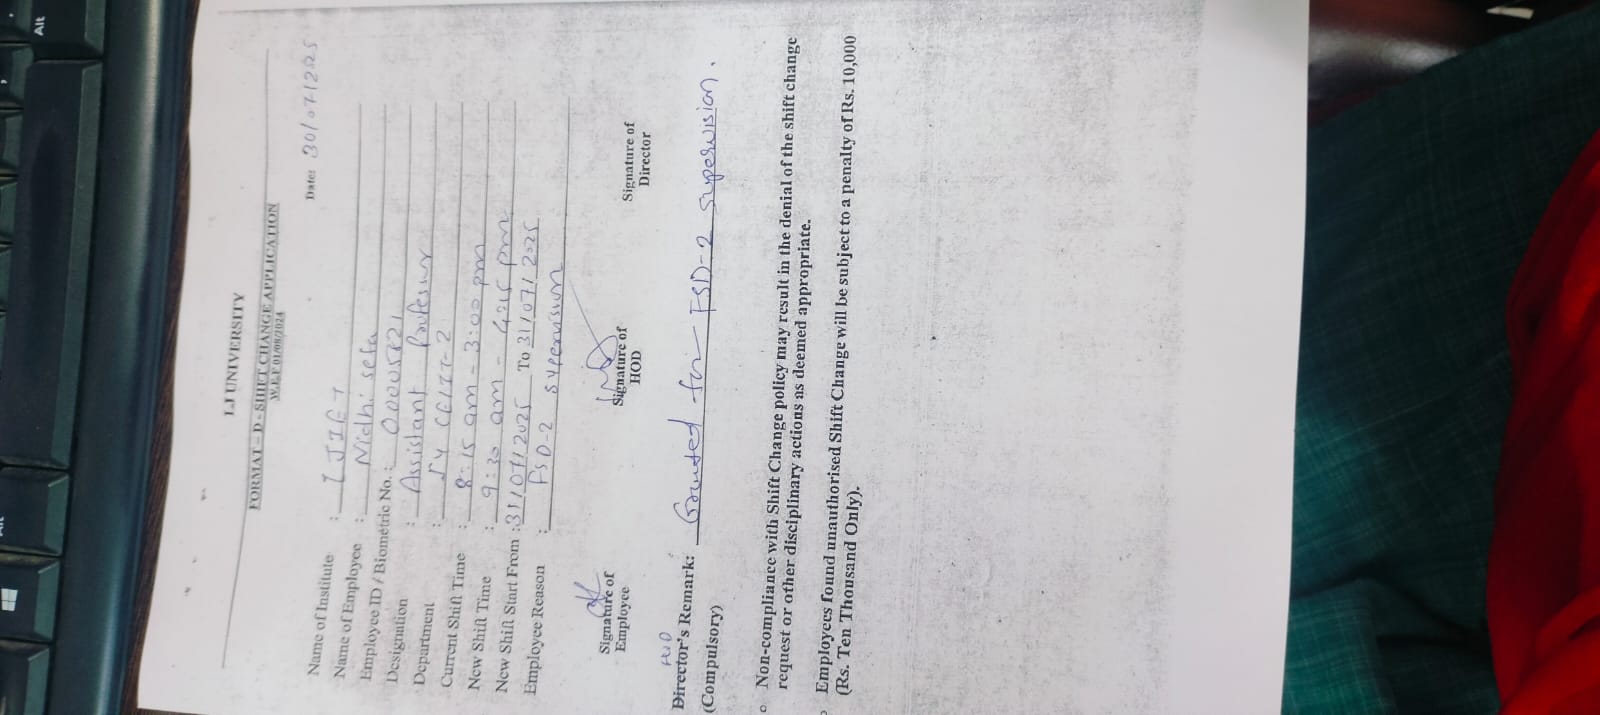 LJ UNIVERSITY
FORMAT – D - SHIFT CHANGE APPLICATION
W.E.F 01/08/2024
Date: 30/07/2025
Name of Institute : LJIET
Name of Employee : Nidhi seta
Employee ID / Biometric No. : 00005821
Designation : Assistant Professor
Department : SY CEIIT-2
Current Shift Time : 8:15 am - 3:00 pm
New Shift Time : 9:30 am - 4:15 pm
New Shift Start From : 31/07/2025 To 31/07/2025
Employee Reason : FSD-2 supervision
Signature of Employee
Signature of HOD
Signature of Director
HOD
Director's Remark: Granted for FSD-2 supervision.
(Compulsory)
Non-compliance with Shift Change policy may result in the denial of the shift change
request or other disciplinary actions as deemed appropriate.
Employees found unauthorised Shift Change will be subject to a penalty of Rs. 10,000
(Rs. Ten Thousand Only).
Alt
Alt